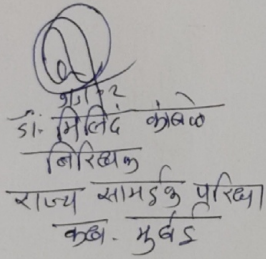 डॉ. मिलिंद कांबळे
निरिक्षक
राज्य सामाईक परिक्षा
कक्ष. मुंबई